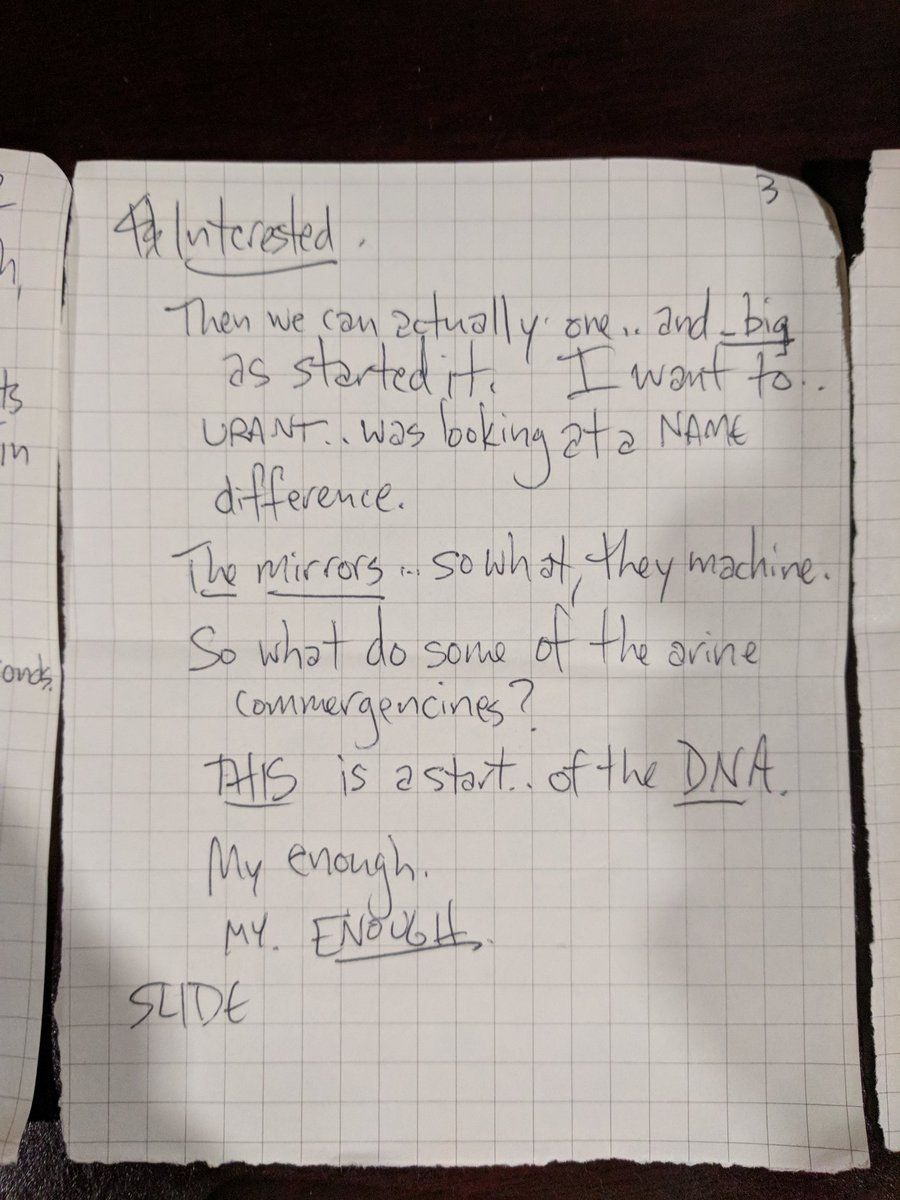 3
Interested.
Then we can actually one.. and big
as started it. I want to..
URANT.. was looking at a NAME
difference.
The mirrors... so what, they machine.
So what do some of the arine
commergencines?
THIS is a start.. of the DNA.
My enough.
MY. ENOUGH.
SLIDE
ts
in
onds.